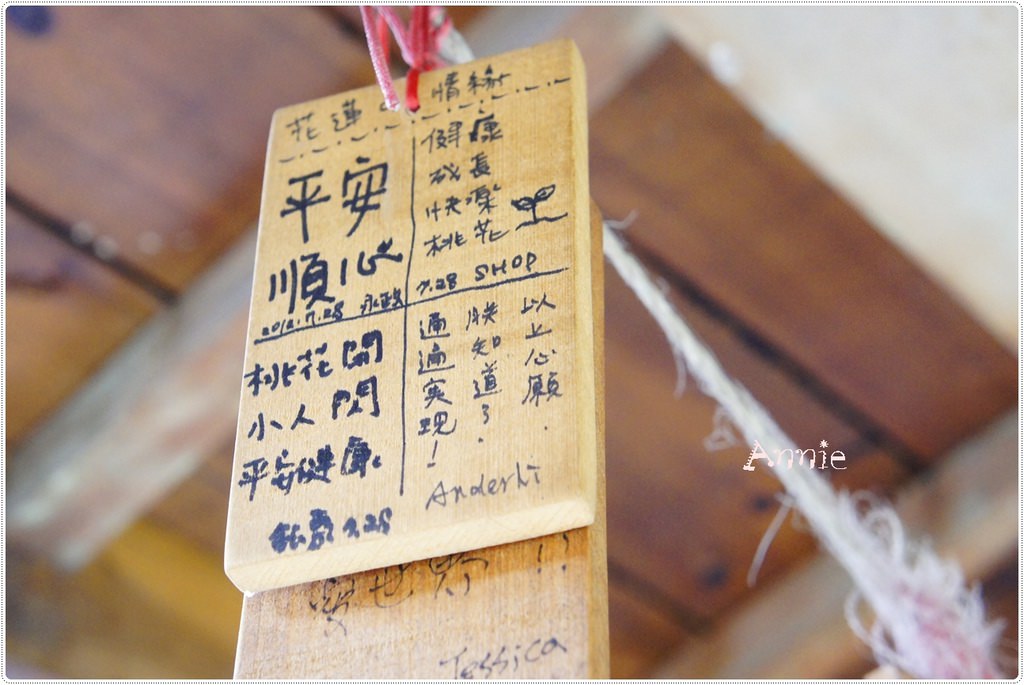 花蓮の情緣
平安
順心
2012.7.28 永政
健康
成長
快樂
桃花
7.28 SHOP
桃花開
小人閃
平安健康
7.28
以上心願.
朕知道了.
通通实現!
Anderhi
!!
Jessica
Annie